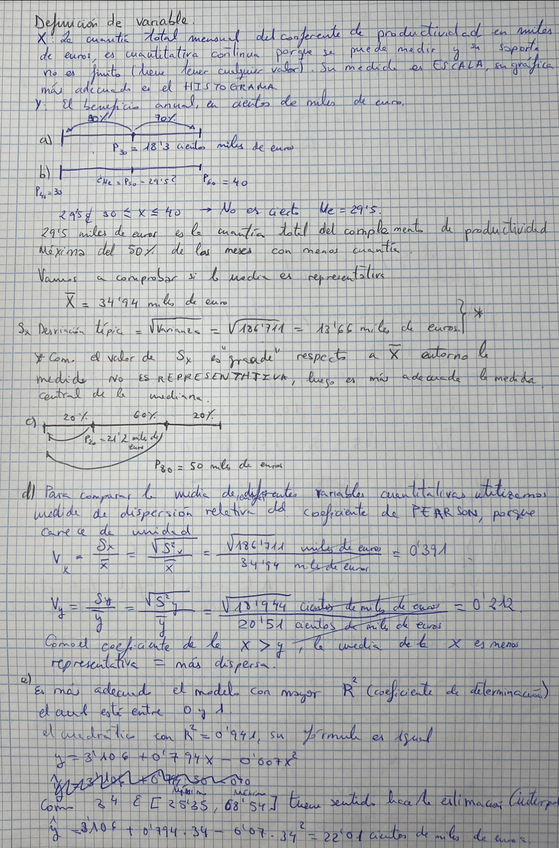 Definición de variable.
X: La cuantía total mensual del conferente de productividad en miles
de euros, es cuantitativa continua porque se puede medir y su soporte
no es finito (tiene tener cualquier valor). Su medida es ESCALA, su gráfica
más adecuada es el HISTOGRAMA.
Y: El beneficio anual, en cientos de miles de euro.
30% 70%
a)
P₃₀ = 18'3 cientos miles de euro
b)
P₄₀=30 Me = P₅₀ = 29'5? P₆₀ = 40
29'5 ∉ 30 ≤ x ≤ 40 → No es cierto Me = 29'5.
29'5 miles de euros es la cuantía total del complemento de productividad
Máxima del 50% de los meses con menos cuantía.
Vamos a comprobar si la media es representativa
X̅ = 34'94 miles de euro
Sx Desviación típica = √Varianza = √186'711 = 13'66 miles de euros. } *
* Como el valor de Sx es "grande" respecto a X̅ entorno la
medida NO ES REPRESENTATIVA, luego es más adecuada la medida
central de la mediana.
c) 20% 60% 20%
P₂₀ = 21'2 miles de euro
P₈₀ = 50 miles de euros
d) Para comparar la media de diferentes variables cuantitativas utilizamos
medida de dispersión relativa del coeficiente de PEARSON, porque
carece de unidad
Vx = Sx/x̅ = √S²x/x̅ = √186'711 miles de euro/34'94 miles de euro = 0'391
Vy = Sy/y̅ = √S²y/y̅ = √18'944 cientos de miles de euro/20'51 cientos de miles de euro = 0'212
Como el coeficiente de la x > y, la media de la x es menos
representativa = más dispersa.
e)
Es más adecuado el modelo con mayor R² (coeficiente de determinación)
el cual está entre 0 y 1
el cuadrático con R² = 0'941, su fórmula es igual
y = 3'106 + 0'794x - 0'007x²
mínimo máximo
Como 34 ∈ [25'35, 68'54] tiene sentido hacer la estimación
ŷ = 3'106 + 0'794·34 - 0'07·34² = 22'01 cientos de miles de euros